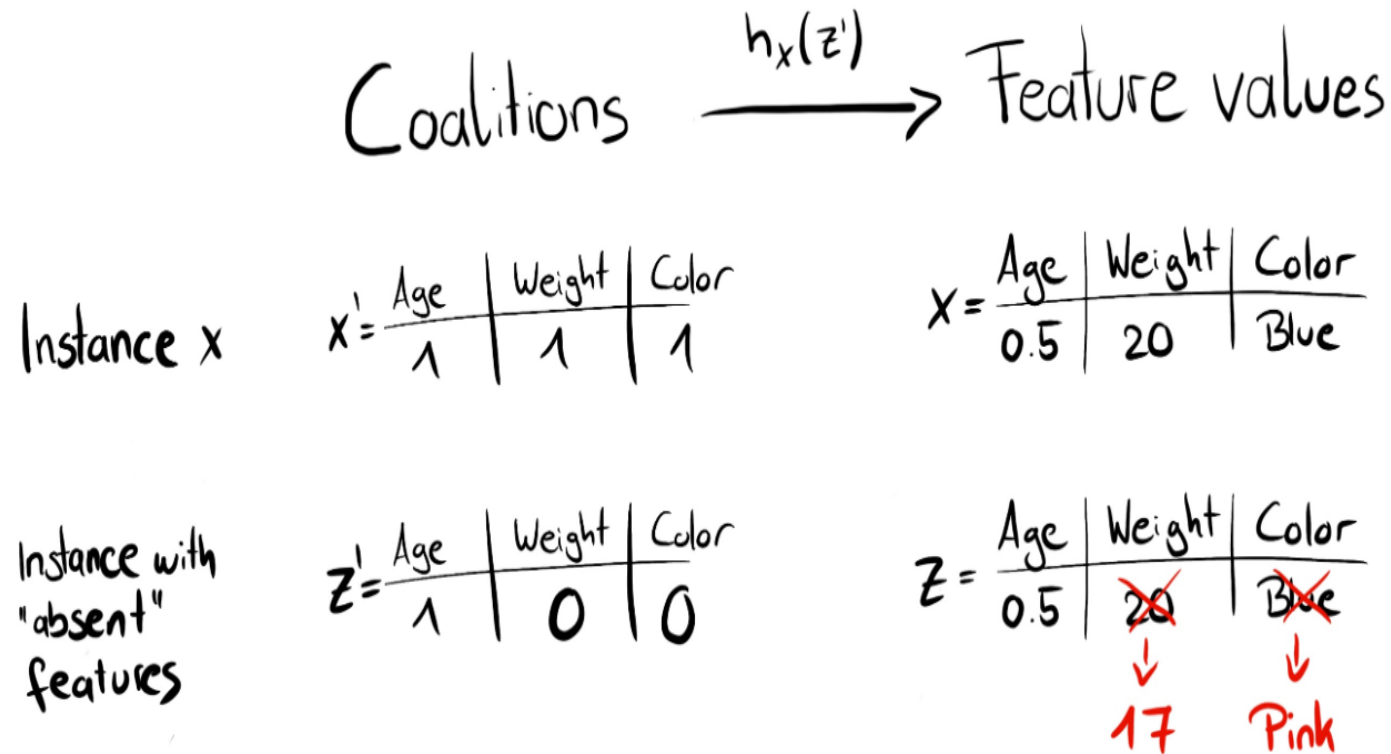 Coalitions hₓ(z') → Feature values
Age | Weight | Color
Instance x x' = 1 | 1 | 1
Age | Weight | Color
x = 0.5 | 20 | Blue
Instance with
"absent"
features
Age | Weight | Color
z' = 1 | 0 | 0
Age | Weight | Color
z = 0.5 | 20 | Blue
↓ ↓
17 Pink